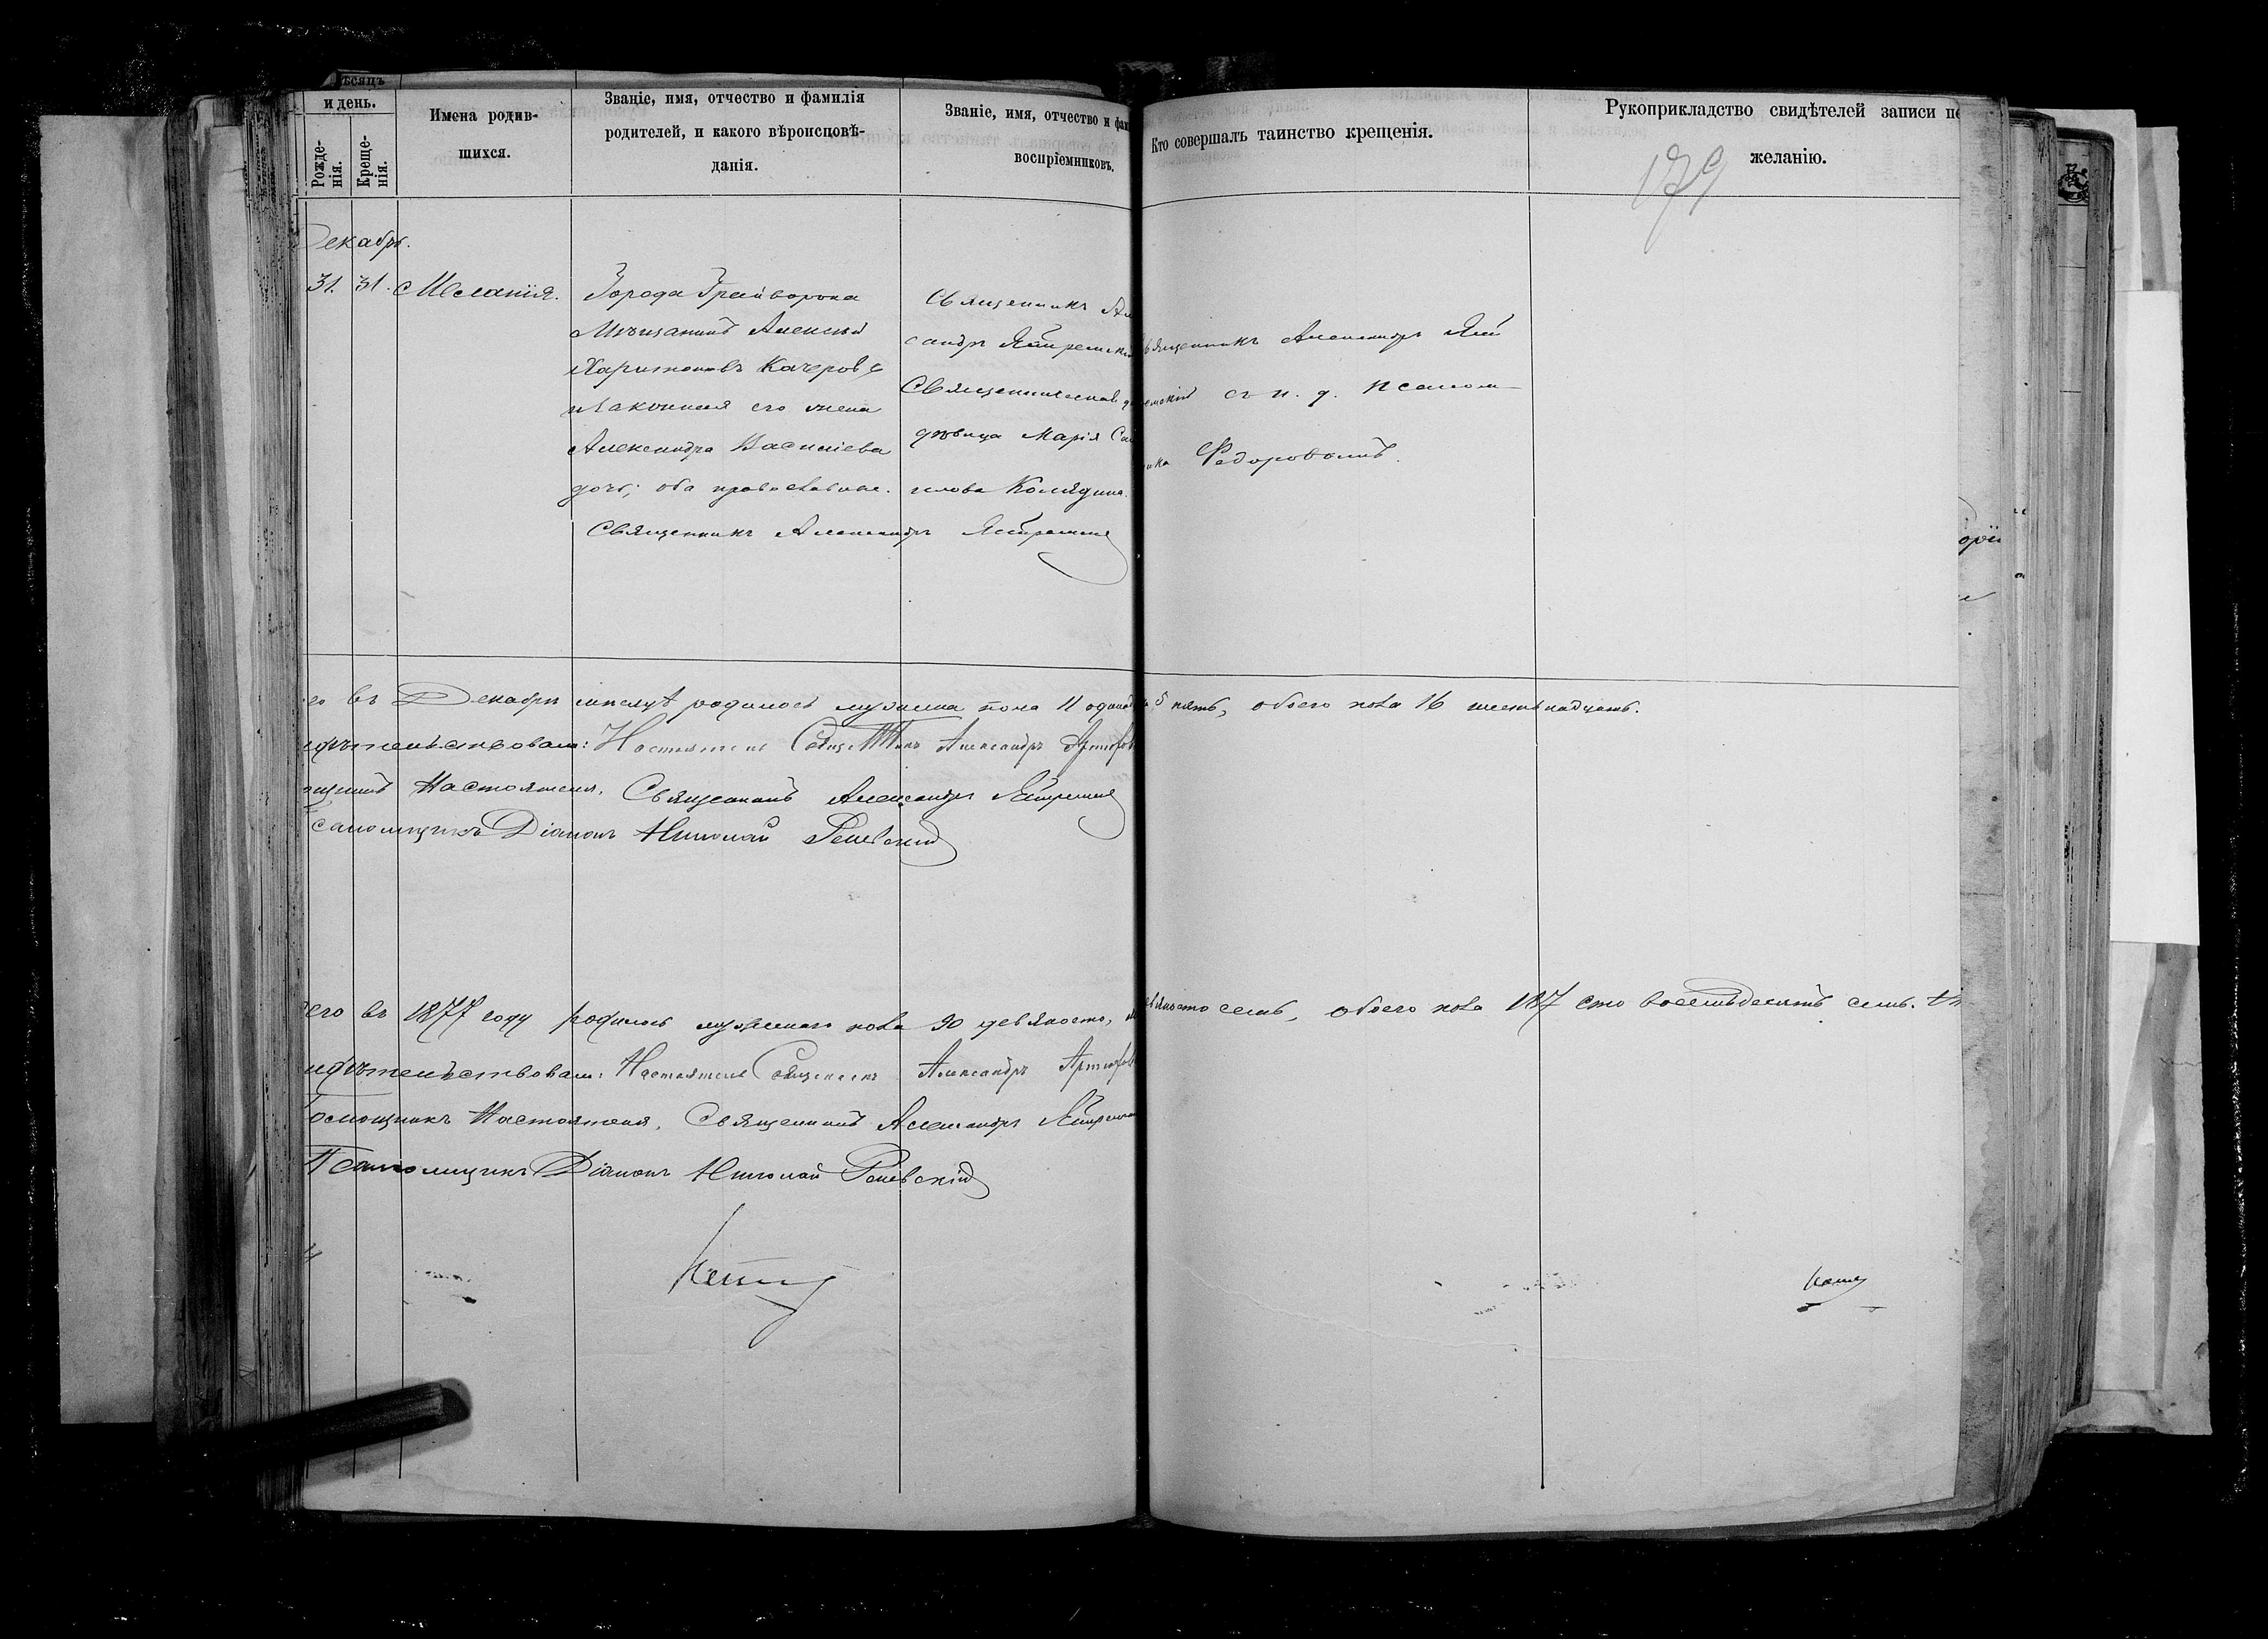 ѣсяцъ
и день.
Рожде-
нія.
Креще-
нія.
Имена родив-
шихся.
Званіе, имя, отчество и фамилія
родителей, и какого вѣроисповѣ-
данія.
Званіе, имя, отчество и фам
воспріемниковъ.
Кто совершалъ таинство крещенія.
Рукоприкладство свидѣтелей записи по
желанію.
179
Декабрь.
31. 31. Меланія.
Города Грайворона
Мѣщанинъ Алексѣй
Харитоновъ Качеровъ
и законная его жена
Александра Василіева
дочь; оба православные.
Священникъ Александръ Ястремскій
Священникъ Ал
сандръ Ястремскій
Священническая д
дѣвица Марія
Колядина.
вященникъ Александръ Яст
емскій съ и. д. псалом-
ика Федоровымъ.
го въ Декабрѣ мѣсяцѣ родилось мужеска пола 11 одинад
5 пять, обоего пола 16 шестьнадцать.
идѣтельствовали: Настоятель Священникъ Александръ Артюхов
ощникъ Настоятеля, Священникъ Александръ Ястремскій
саломщикъ Діаконъ Николай Раевскій
сего въ 1877 году родилось мужескаго пола 90 девяносто,
евяносто семь, обоего пола 187 сто восемьдесятъ семь.
идѣтельствовали: Настоятель Священникъ Александръ Артюхов
Помощникъ Настоятеля, Священникъ Александръ Ястремск
Псаломщикъ Діаконъ Николай Раевскій